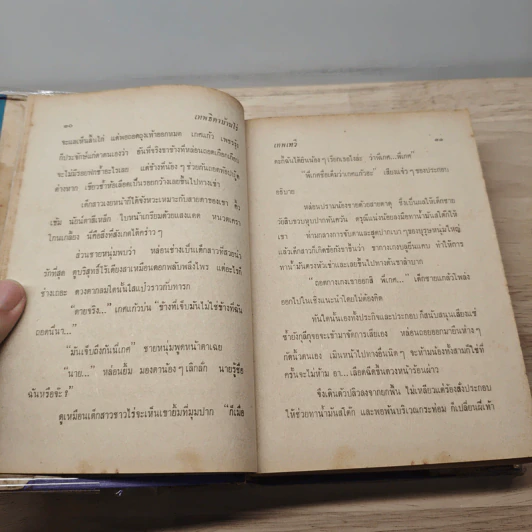 ๑๐ เทพธิดาบ้านไร่
จะแลเห็นตีนไก่ แต่พอถอดถุงเท้าออกหมด เกศแก้ว เพชรรุ้ง
ก็ประจักษ์แก่ตาตนเองว่า อันที่จริงขาข้างที่หล่อนถอดเกือกเกือบ
จะไม่มีรอยฟกช้ำอะไรเลย แต่ข้างที่น้อง ๆ ช่วยกันถอด
ต่างหาก เขียวช้ำห้อเลือดเป็นรอยกว้างเลยขึ้นไปทางเข่า
เด็กสาวเงยหน้าก็ได้จังหวะเหมาะกับสายตาของเขา คิ้ว
เข้ม นัยน์ตาสีเหล็ก ใบหน้าเกรียมด้วยแสงแดด หนวดเครา
โกนเกลี้ยง นี่คือสิ่งที่สังเกตได้คร่าว ๆ
ส่วนชายหนุ่มพบว่า หล่อนช่างเป็นเด็กสาวที่สวยน่า
รักที่สุด ดูบริสุทธิ์ไร้เดียงสาเหมือนดอกพลับพลึงไพร แต่อะไรก็
ช่างเถอะ ดวงตากลมโตนั้นใสแป๋วราวกับทารก
“ตายจริง...” เกศแก้วบ่น “ข้างที่เจ็บมันไม่ใช่ข้างที่ฉัน
ถอดนี่นา...”
“มันเจ็บถึงกันนี่เกศ” ชายหนุ่มพูดหน้าตาเฉย
“นาย...” หล่อนยิ้ม มองตาน้อง ๆ เลิกลัก นายรู้ชื่อ
ฉันหรือจ๊ะ ?
ดูเหมือนเด็กสาวชาวไร่จะเห็นเขายิ้มที่มุมปาก “ก็เมื่อ
เทพเทวี ๑๑
ตะกี้ฉันได้ยินน้อง ๆ เรียกเธอไงล่ะ ว่าพี่เกศ...พี่เกศ”
“พี่เกศชื่อเต็มว่าเกศแก้วฮะ” เสียงแจ้ว ๆ ของประกอบ
อธิบาย
หล่อนปรามน้องชายด้วยสายตาดุ ซึ่งแลไม้ได้เด็กชาย
วัยสิบขวบหุบปากทันควัน ดรุณีแน่งน้อยเอามือทาน้ำมันใส่ตักให้
เขา ท่ามกลางการขับตามและสูดปากเบา ๆ ของบุรุษหนุ่มใหญ่
แล้วเด็กสาวก็เกิดขัดกังขาขึ้นว่า ขากางเกงบลูยีนแคบ ทำให้การ
ทาน้ำมันตรงหัวเข่าและเลยขึ้นไปทางต้นขาลำบาก
“ถอดกางเกงเขาออกสี พี่เกศ...” เด็กชายแกล้วโพล่ง
ออกไปในเชิงแนะนำโดยไม่ต้องคิด
ทันใดนั้นเองทั้งประกิจและประกอบ ก็สนับสนุนเสียงแซ่
ซ้ำยังกุลีกุจอจะเข้ามาจัดการเสียเอง หล่อนถอยออกมายืนห่าง ๆ
กัดนิ้วตนเอง เมินหน้าไปทางอื่นนิด ๆ จะห้ามน้องทั้งสามก็ใช่ที่
ครั้นจะไม่ห้าม อา...เลือดฉีดขึ้นดวงหน้าร้อนผ่าว
จึงเดินตัวปลิวลงจากยกพื้น ไม่เหลียวแต่ร้องสั่งประกอบ
ให้ช่วยทาน้ำมันใส่ตัก และพอพ้นบริเวณกระท่อม ก็เปลี่ยนฝีเท้า